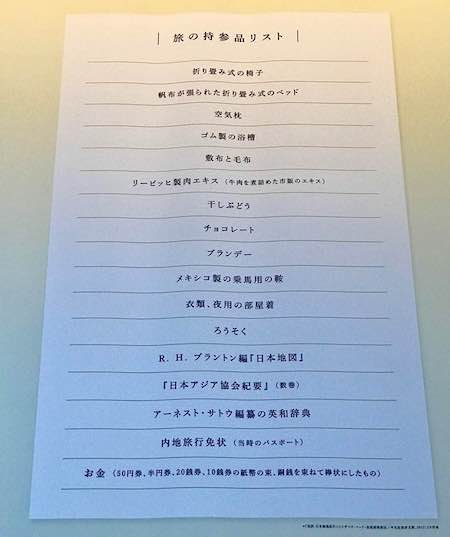 旅の持参品リスト
折り畳み式の椅子
帆布が張られた折り畳み式のベッド
空気枕
ゴム製の浴槽
敷布と毛布
リービッヒ製肉エキス（牛肉を煮詰めた市販のエキス）
干しぶどう
チョコレート
ブランデー
メキシコ製の乗馬用の鞍
衣類、夜用の部屋着
ろうそく
R. H. ブラントン編『日本地図』
『日本アジア協会紀要』（数巻）
アーネスト・サトウ編纂の英和辞典
内地旅行免状（当時のパスポート）
お金（50円券、半円券、20銭券、10銭券の紙幣の束、銅銭を束ねて棒状にしたもの）